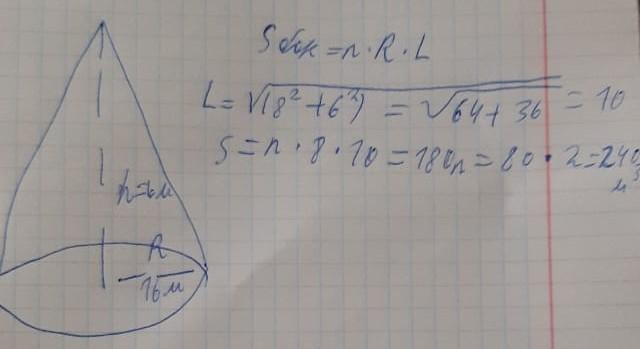 S бок = п · R · L
L = √(8² + 6²) = √64 + 36 = 10
S = п · 8 · 10 = 180п = 80 · 2 = 240 м³
h = 6м
R
16м